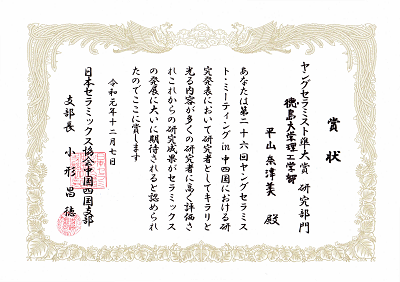 賞状
ヤングセラミスト準大賞 研究部門
徳島大学理工学部
平山 糸津美 殿
あなたは第二十六回ヤングセラミス
ト・ミーティングin中四国における研
究発表において研究者としてキラリと
光る内容が多くの研究者に高く評価さ
れこれからの研究成果がセラミックス
の発展に大いに期待されると認められ
たのでここに賞します
令和元年十二月七日
日本セラミックス協会中国四国支部
支部長 小形 昌徳